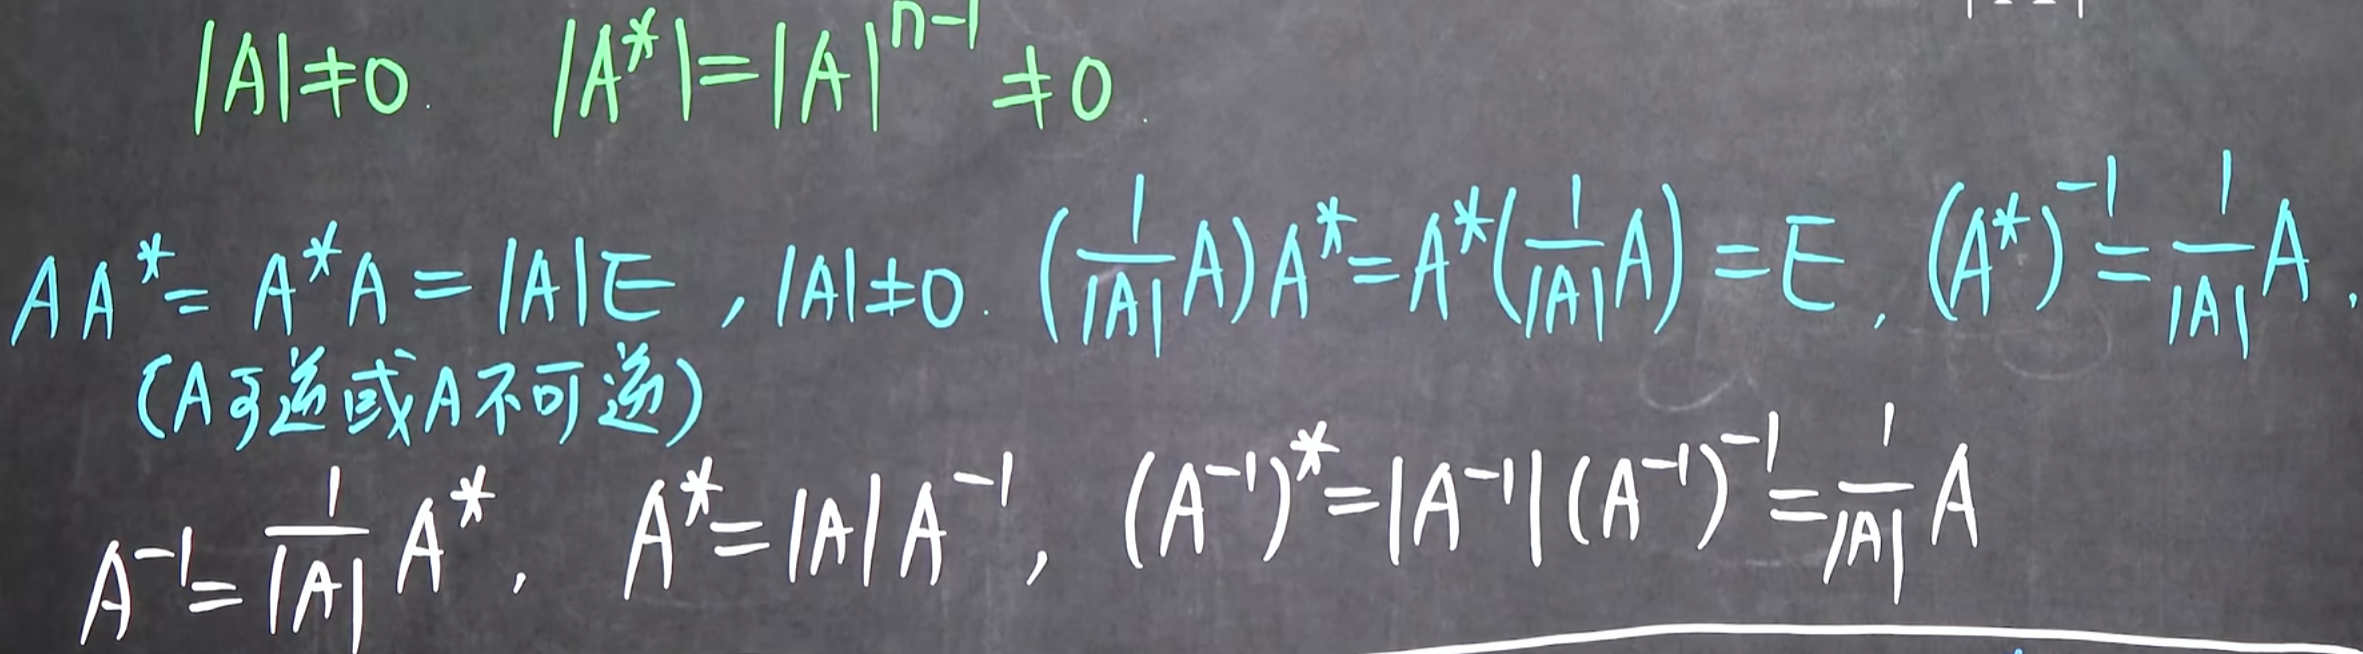 |A|≠0. |A*|=|A|^{n-1}≠0.
AA*=A*A=|A|E, |A|≠0. (\frac{1}{|A|}A)A*=A*(\frac{1}{|A|}A)=E, (A*)^{-1}=\frac{1}{|A|}A,
(A可逆或A不可逆)
A^{-1}=\frac{1}{|A|}A*, A*=|A|A^{-1}, (A^{-1})*=|A^{-1}|(A^{-1})^{-1}=\frac{1}{|A|}A